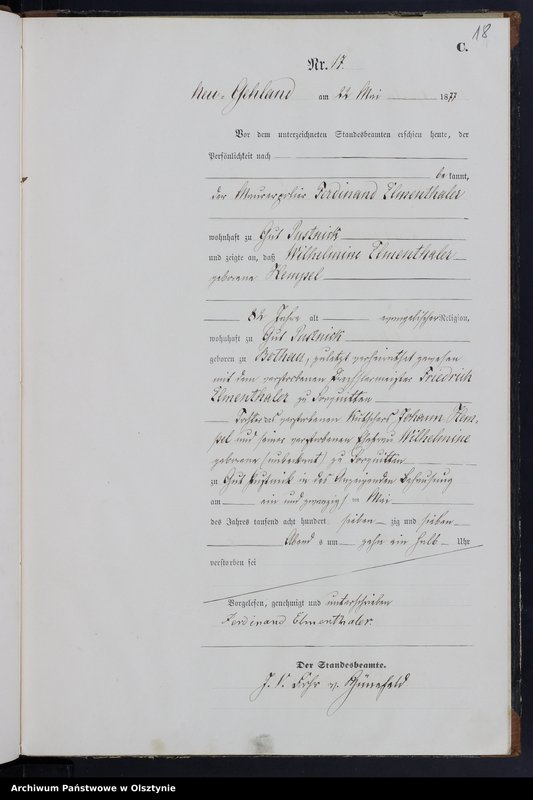 18
C.
Nr. 17.
Neu-Gehland am 22 Mai 1877
Vor dem unterzeichneten Standesbeamten erschien heute, der
Persönlichkeit nach
be kannt,
der Maurerpolier Ferdinand Elmenthaler
wohnhaft zu Gut Pustnick
und zeigte an, daß Wilhelmine Elmenthaler
geborene Kempel
Jahre alt evangelischer Religion,
wohnhaft zu Gut Pustnick
geboren zu Bothau, zuletzt verheirathet gewesen
mit dem verstorbenen Friedrich
Elmenthaler zu Sorquitten
Tochter des verstorbenen Kutschers Johann Kem-
pel und seiner verstorbenen Ehefrau Wilhelmine
geborene (unbekannt) zu Sorquitten
zu Gut Pustnick in des Anzeigenden Behausung
am ein und zwanzig ten Mai
des Jahres tausend acht hundert sieben zig und sieben
Abend s um zehn ein halb Uhr
verstorben sei
Vorgelesen, genehmigt und unterschrieben
Ferdinand Elmenthaler.
Der Standesbeamte.
J. V. v.
Archiwum Państwowe w Olsztynie